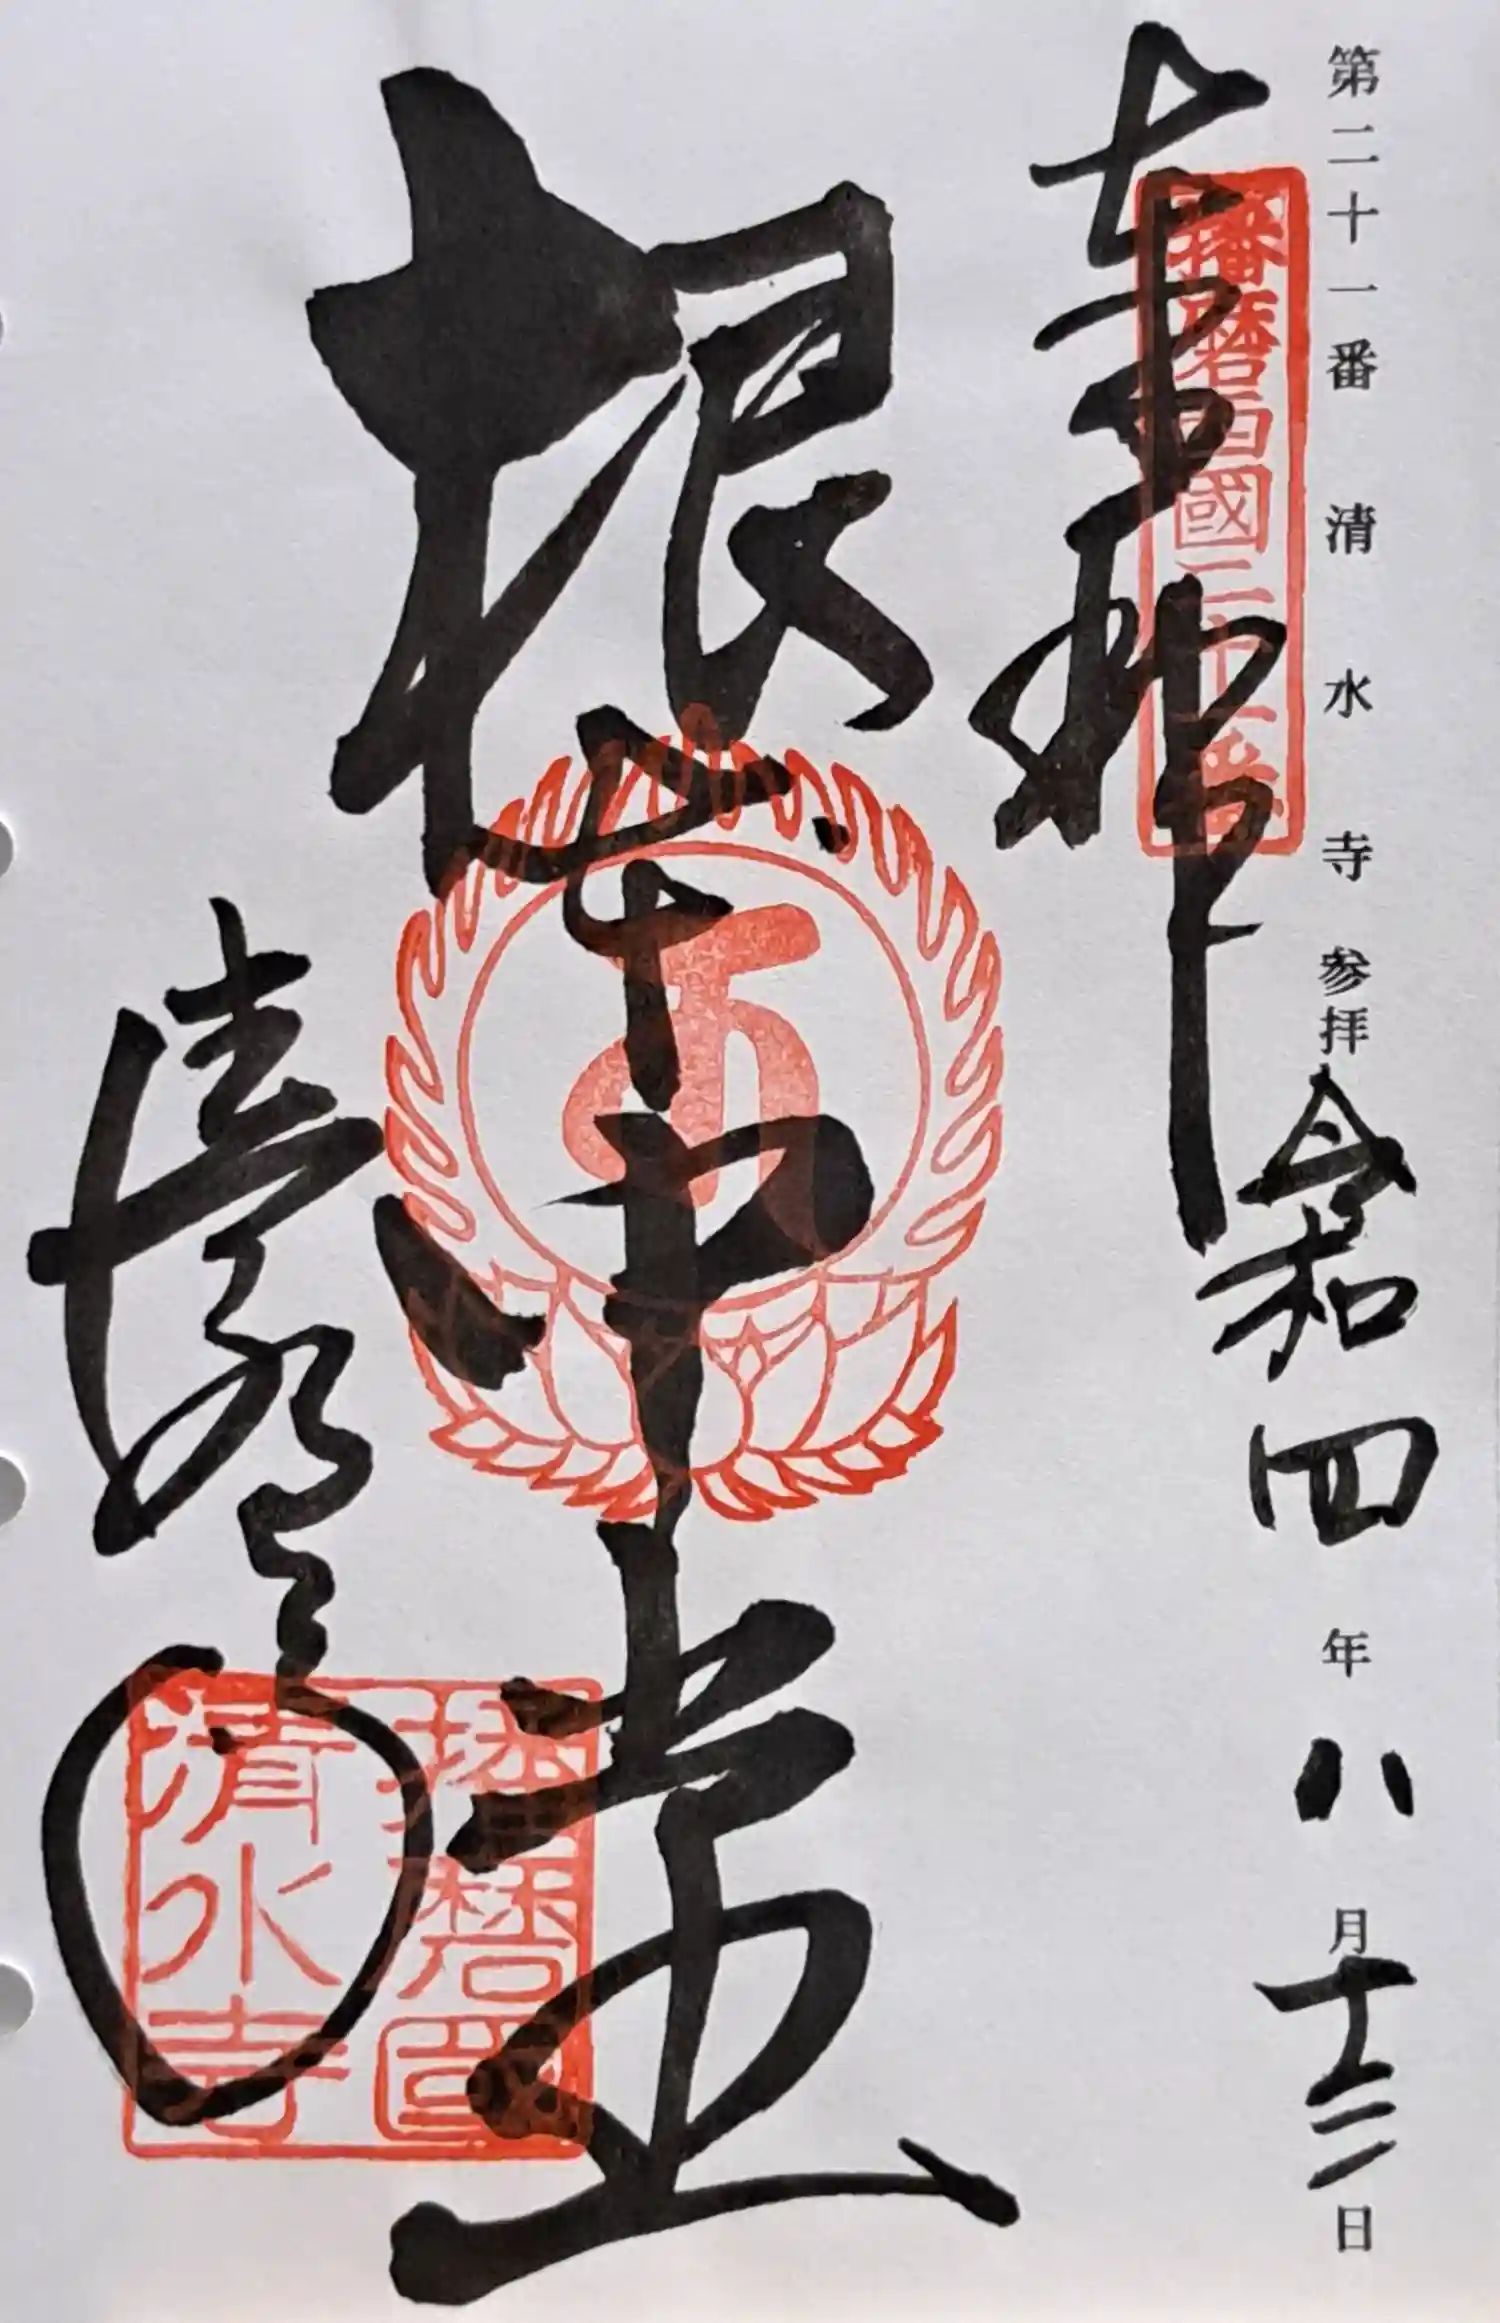 第二十一番 清水寺 参拝 令和四年八月十三日
奉拝
播磨西國二十一番
根本中堂
清水寺
播磨國
清水寺